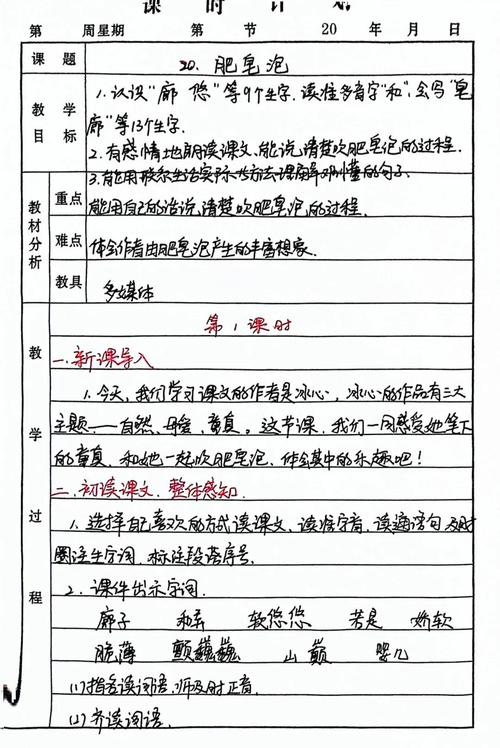 课时计划
第 周星期 第 节 20 年 月 日
课题 20.肥皂泡
教学目标 1.认识“廊 悠”等9个生字.读准多音字“和”,会写“皂
廊”等13个生字.
2.有感情地朗读课文,能说清楚吹肥皂泡的过程.
3.能用联系生活实际的方法理解难懂的句子.
教材分析 重点 能用自己的话说清楚吹肥皂泡的过程.
难点 体会作者由肥皂泡产生的丰富想象.
教具 多媒体
教学过程
第1课时
一.新课导入
1.今天,我们学习课文的作者是冰心,冰心的作品有三大
主题——自然、母爱、童真。这节课,我们一同感受她笔下
的童真,和她一起吹肥皂泡,体会其中的乐趣吧!
二.初读课文,整体感知.
1.选择自己喜欢的方式读课文,读准字音,读通语句,及时
圈注生字词,标注段落序号.
2.课件出示字词.
廊子 和弄 软悠悠 若是 娇软
脆薄 颤巍巍 山巅 婴儿
(1)指名读词语,师及时正音.
(2)齐读词语.